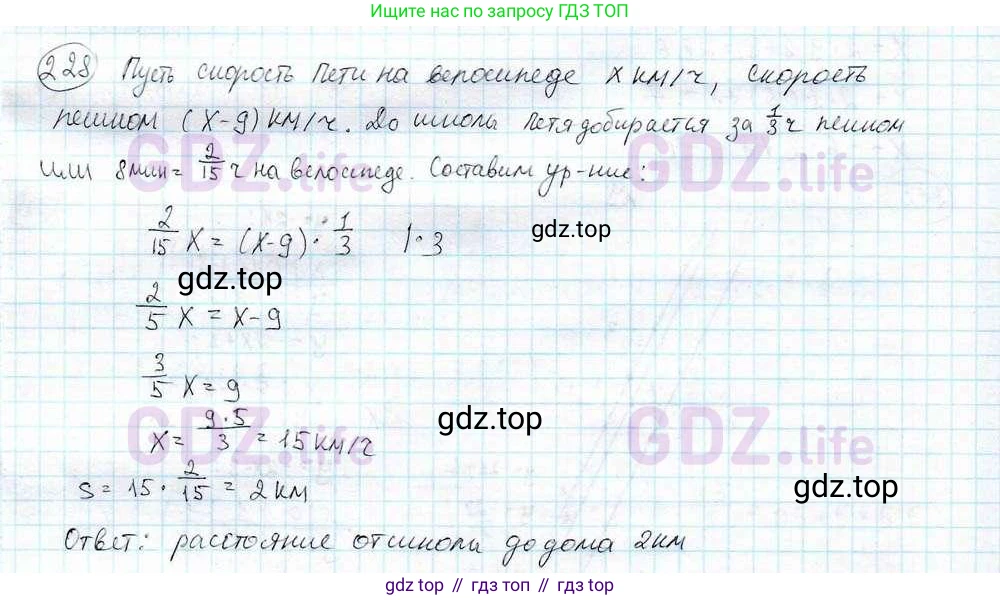 Ищите нас по запросу ГДЗ ТОП
228 Пусть скорость Пети на велосипеде x км/ч, скорость
пешком (x-9) км/ч. До школы Петя добирается за 1/3 ч пешком
или 8мин = 2/15 ч на велосипеде. Составим ур-ние:
2/15 x = (x-9) · 1/3 | · 3
gdz.top
gdz.top
2/5 x = x - 9
3/5 x = 9
x = 9·5/3 = 15 км/ч
gdz.top
s = 15 · 2/15 = 2 км
gdz.top
Ответ: расстояние от школы до дома 2 км
GDZ.life
GDZ.life
GDZ.life
GDZ.life
gdz.top // гдз топ // gdz.top